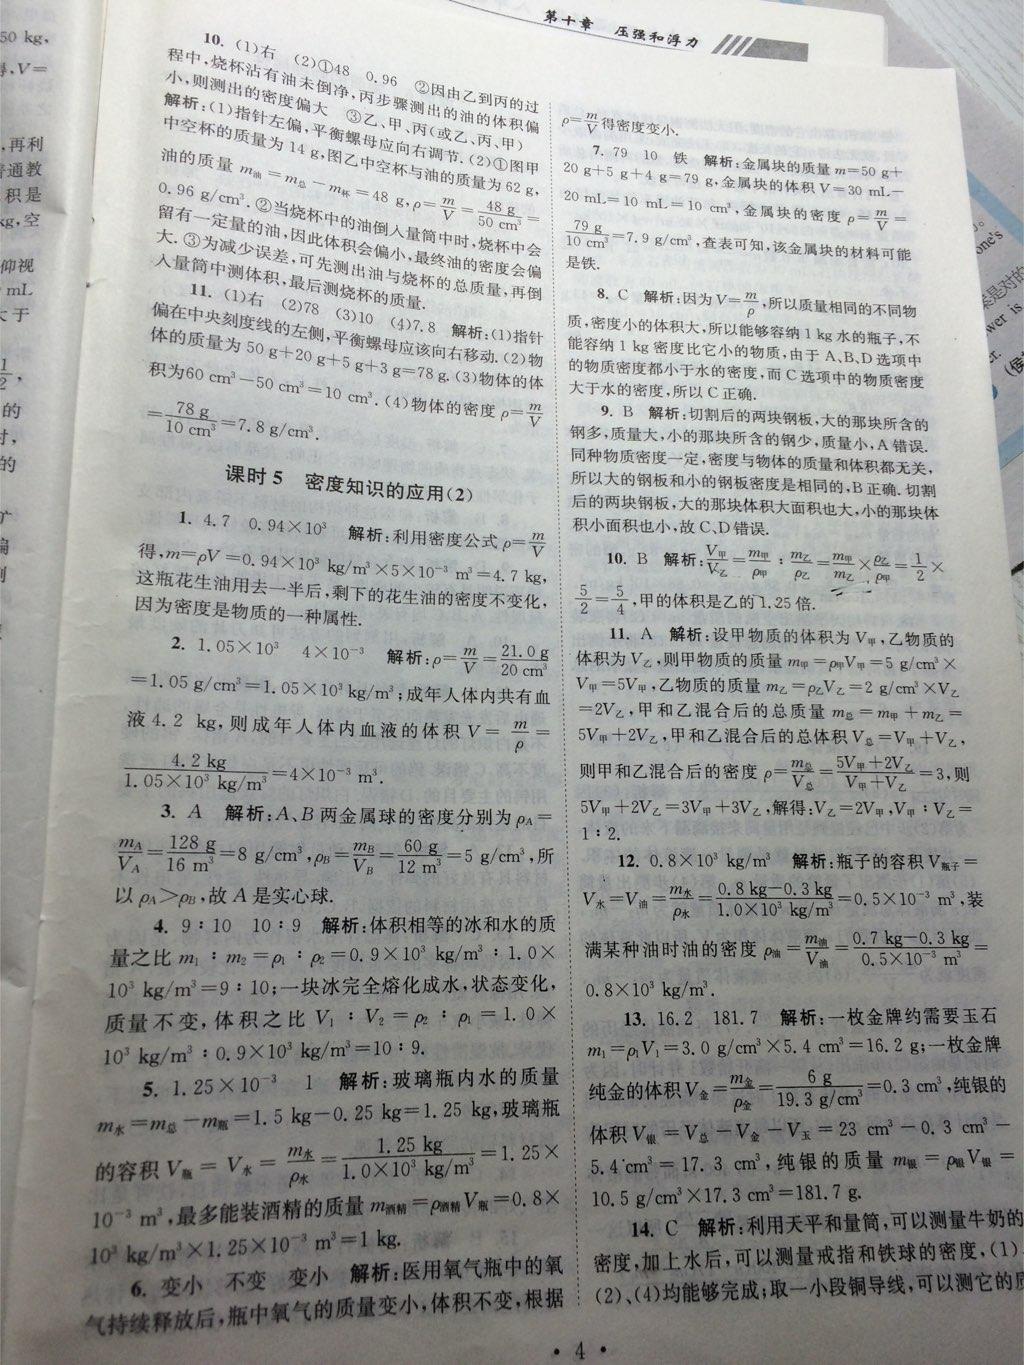 第十章　压强和浮力
10. (1)右　(2)①48　0.96　②因由乙到丙的过
程中,烧杯沾有油未倒净,丙步骤测出的油的体积偏
小,则测出的密度偏大　③乙、甲、丙(或乙、丙、甲)
解析:(1)指针左偏,平衡螺母应向右调节.(2)①图甲
中空杯的质量为14 g,图乙中空杯与油的质量为62 g,
油的质量 m油=m总-m杯=48 g,ρ=m/V=48 g/50 cm³=
0.96 g/cm³.②当烧杯中的油倒入量筒中时,烧杯中会
留有一定量的油,因此体积会偏小,最终油的密度会偏
大.③为减少误差,可先测出油与烧杯的总质量,再倒
入量筒中测体积,最后测烧杯的质量.
11. (1)右　(2)78　(3)10　(4)7.8　解析:(1)指针
偏在中央刻度线的左侧,平衡螺母应该向右移动.(2)物
体的质量为50 g+20 g+5 g+3 g=78 g.(3)物体的体
积为60 cm³-50 cm³=10 cm³.(4)物体的密度 ρ=m/V
=78 g/10 cm³=7.8 g/cm³.
课时5　密度知识的应用(2)
1. 4.7　0.94×10³　解析:利用密度公式 ρ=m/V
得,m=ρV=0.94×10³ kg/m³×5×10⁻³ m³=4.7 kg,
这瓶花生油用去一半后,剩下的花生油的密度不变化,
因为密度是物质的一种属性.
2. 1.05×10³　4×10⁻³　解析:ρ=m/V=21.0 g/20 cm³
=1.05 g/cm³=1.05×10³ kg/m³;成年人体内共有血
液4.2 kg,则成年人体内血液的体积 V=m/ρ=
4.2 kg/1.05×10³ kg/m³=4×10⁻³ m³.
3. A　解析:A、B两金属球的密度分别为 ρA=
mA/VA=128 g/16 m³=8 g/cm³,ρB=mB/VB=60 g/12 m³=5 g/cm³,所
以 ρA>ρB,故 A 是实心球.
4. 9∶10　10∶9　解析:体积相等的冰和水的质
量之比 m₁∶m₂=ρ₁∶ρ₂=0.9×10³ kg/m³∶1.0×
10³ kg/m³=9∶10;一块冰完全熔化成水,状态变化,
质量不变,体积之比 V₁∶V₂=ρ₂∶ρ₁=1.0×
10³ kg/m³∶0.9×10³ kg/m³=10∶9.
5. 1.25×10⁻³　1　解析:玻璃瓶内水的质量
m水=m总-m瓶=1.5 kg-0.25 kg=1.25 kg,玻璃瓶
的容积 V瓶=V水=m水/ρ水=1.25 kg/1.0×10³ kg/m³=1.25×
10⁻³ m³,最多能装酒精的质量 m酒精=ρ酒精V瓶=0.8×
10³ kg/m³×1.25×10⁻³ m³=1 kg.
6. 变小　不变　变小　解析:医用氧气瓶中的氧
气持续释放后,瓶中氧气的质量变小,体积不变,根据
ρ=m/V得密度变小.
7. 79　10　铁　解析:金属块的质量 m=50 g+
20 g+5 g+4 g=79 g,金属块的体积 V=30 mL-
20 mL=10 mL=10 cm³,金属块的密度 ρ=m/V=
79 g/10 cm³=7.9 g/cm³,查表可知,该金属块的材料可能
是铁.
8. C　解析:因为 V=m/ρ,所以质量相同的不同物
质,密度小的体积大,所以能够容纳1 kg水的瓶子,不
能容纳1 kg密度比它小的物质,由于A、B、D选项中
的物质密度都小于水的密度,而C选项中的物质密度
大于水的密度,所以C正确.
9. B　解析:切割后的两块钢板,大的那块所含的
钢多,质量大,小的那块所含的钢少,质量小,A错误.
同种物质密度一定,密度与物体的质量和体积都无关,
所以大的钢板和小的钢板密度是相同的,B正确.切割
后的两块钢板,大的那块体积大面积也大,小的那块体
积小面积也小,故C、D错误.
10. B　解析:V甲/V乙=m甲/ρ甲∶m乙/ρ乙=m甲/m乙×ρ乙/ρ甲=1/2×
5/2=5/4,甲的体积是乙的1.25倍.
11. A　解析:设甲物质的体积为 V甲,乙物质的
体积为 V乙,则甲物质的质量 m甲=ρ甲V甲=5 g/cm³×
V甲=5V甲,乙物质的质量 m乙=ρ乙V乙=2 g/cm³×V乙
=2V乙,甲和乙混合后的总质量 m总=m甲+m乙=
5V甲+2V乙,甲和乙混合后的总体积 V总=V甲+V乙,
则甲和乙混合后的密度 ρ=m总/V总=5V甲+2V乙/V甲+V乙=3,则
5V甲+2V乙=3V甲+3V乙,解得:V乙=2V甲,V甲∶V乙=
1∶2.
12. 0.8×10³ kg/m³　解析:瓶子的容积 V瓶子=
V水=V油=m水/ρ水=0.8 kg-0.3 kg/1.0×10³ kg/m³=0.5×10⁻³ m³,装
满某种油时油的密度 ρ油=m油/V油=0.7 kg-0.3 kg/0.5×10⁻³ m³=
0.8×10³ kg/m³.
13. 16.2　181.7　解析:一枚金牌约需要玉石
m₁=ρ₁V₁=3.0 g/cm³×5.4 cm³=16.2 g;一枚金牌
纯金的体积 V金=m金/ρ金=6 g/19.3 g/cm³=0.3 cm³,纯银的
体积 V银=V总-V金-V玉=23 cm³-0.3 cm³-
5.4 cm³=17.3 cm³,纯银的质量 m银=ρ银V银=
10.5 g/cm³×17.3 cm³=181.7 g.
14. C　解析:利用天平和量筒,可以测量牛奶的
密度,加上水后,可以测量戒指和铁球的密度,(1)、
(2)、(4)均能够完成;取一小段铜导线,可以测它的质
• 4 •